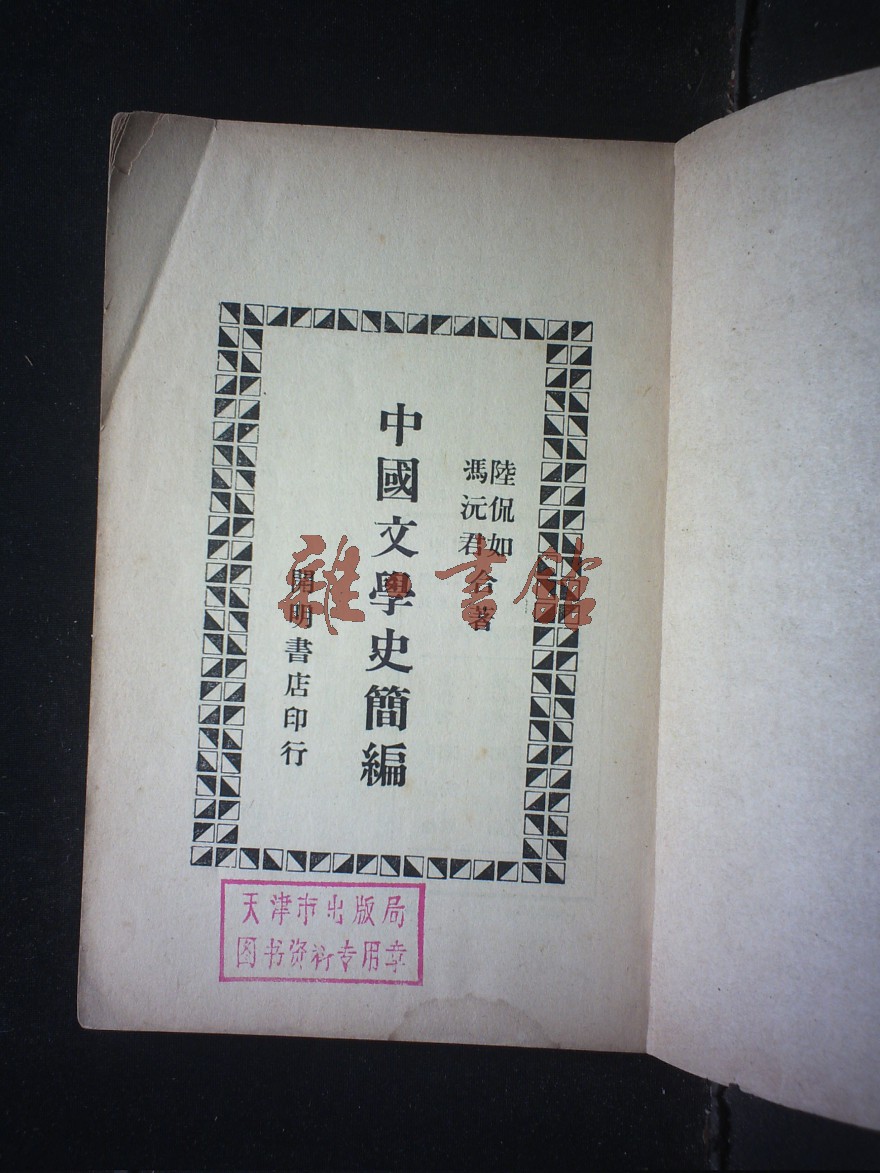 陸侃如
馮沅君 合著
中國文學史簡編
開明書店印行
雜·書館
天津市出版局
图书资料专用章